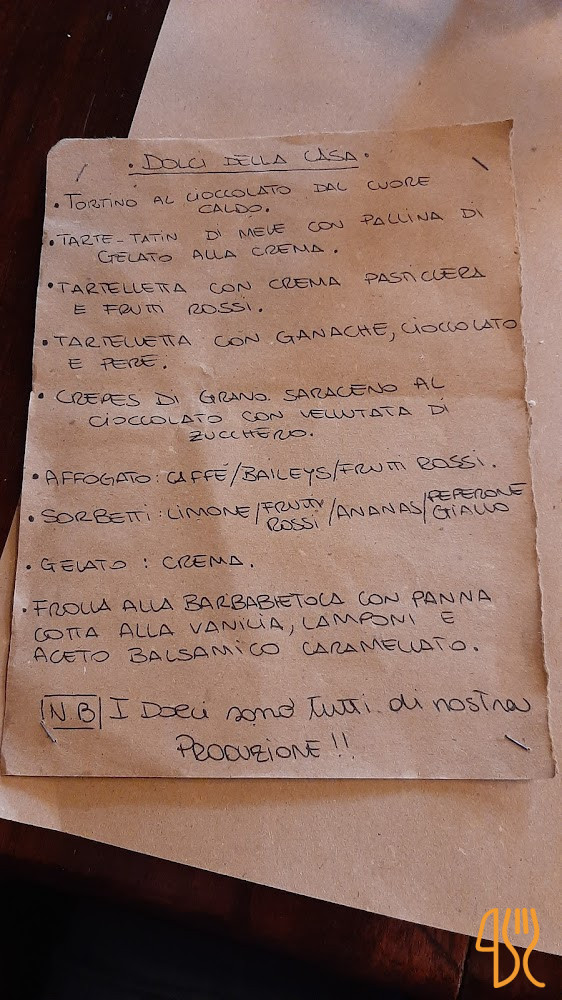 • DOLCI DELLA CASA •
• TORTINO AL CIOCCOLATO DAL CUORE
CALDO.
• TARTE-TATIN DI MELE CON PALLINA DI
GELATO ALLA CREMA.
• TARTELLETTA CON CREMA PASTICCERA
E FRUTTI ROSSI.
• TARTELLETTA CON GANACHE, CIOCCOLATO
E PERE.
• CREPES DI GRANO SARACENO AL
CIOCCOLATO CON VELLUTATA DI
ZUCCHERO.
• AFFOGATO: CAFFÉ/BAILEYS/FRUTTI ROSSI.
• SORBETTI: LIMONE/FRUTTI ROSSI/ANANAS/PEPERONE GIALLO
• GELATO: CREMA.
• FROLLA ALLA BARBABIETOLA CON PANNA
COTTA ALLA VANILIA, LAMPONI E
ACETO BALSAMICO CARAMELLATO.
NB I Dolci sono tutti di nostra
PRODUZIONE!!